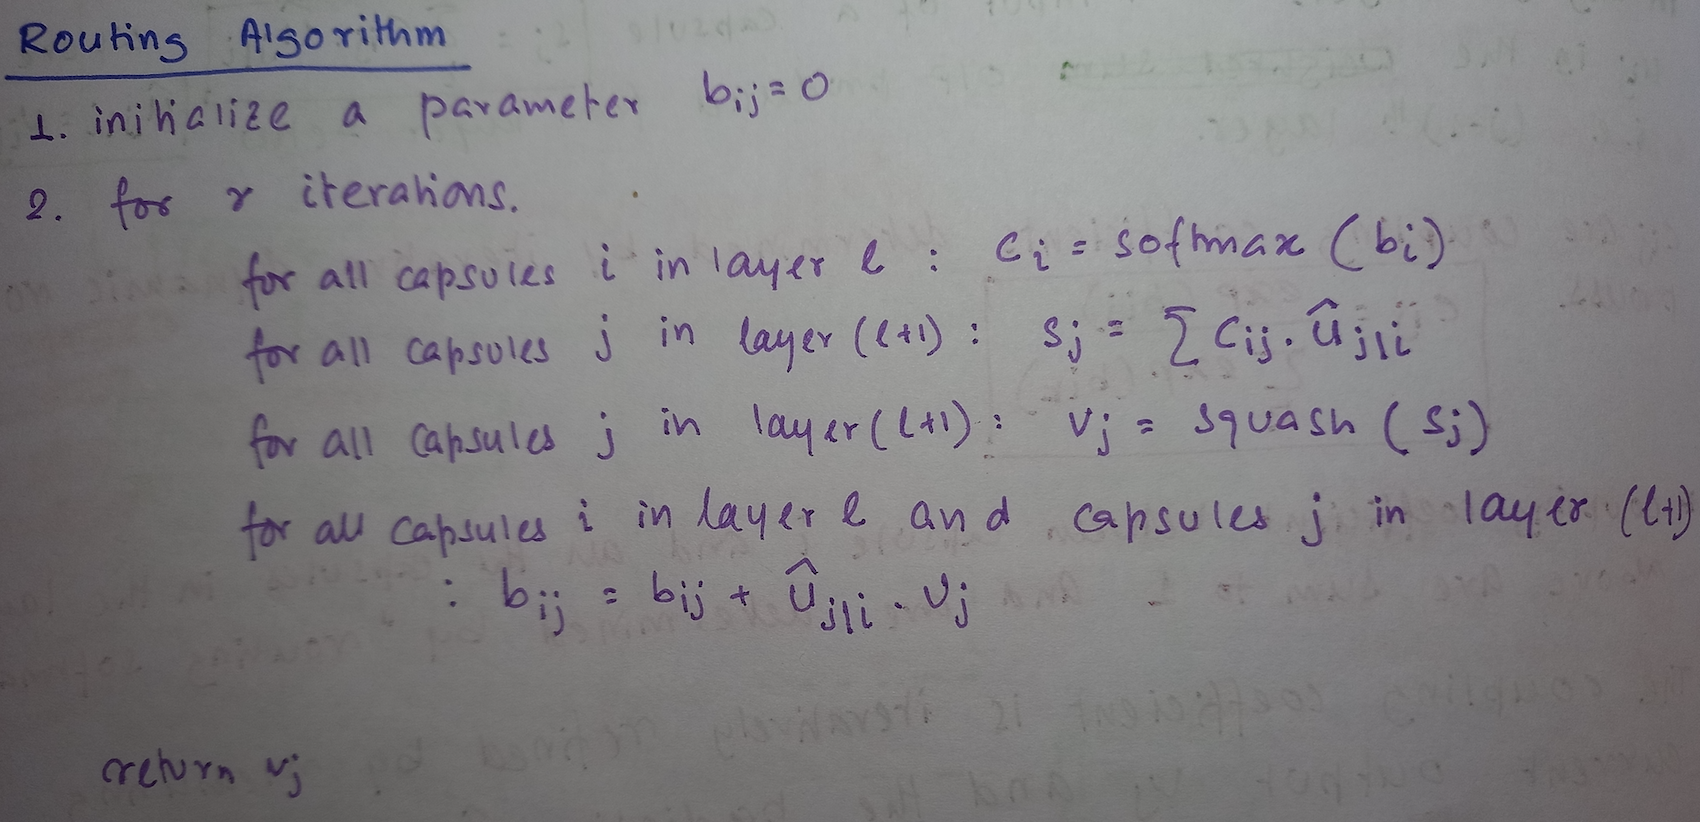 Routing Algorithm
1. initialize a parameter bij=0
2. for r iterations.
for all capsules i in layer l : ci = softmax (bi)
for all capsules j in layer (l+1) : sj = ∑ cij. ûj|i
for all capsules j in layer (l+1) : vj = squash (sj)
for all capsules i in layer l and capsules j in layer (l+1)
: bij = bij + ûj|i . vj
return vj